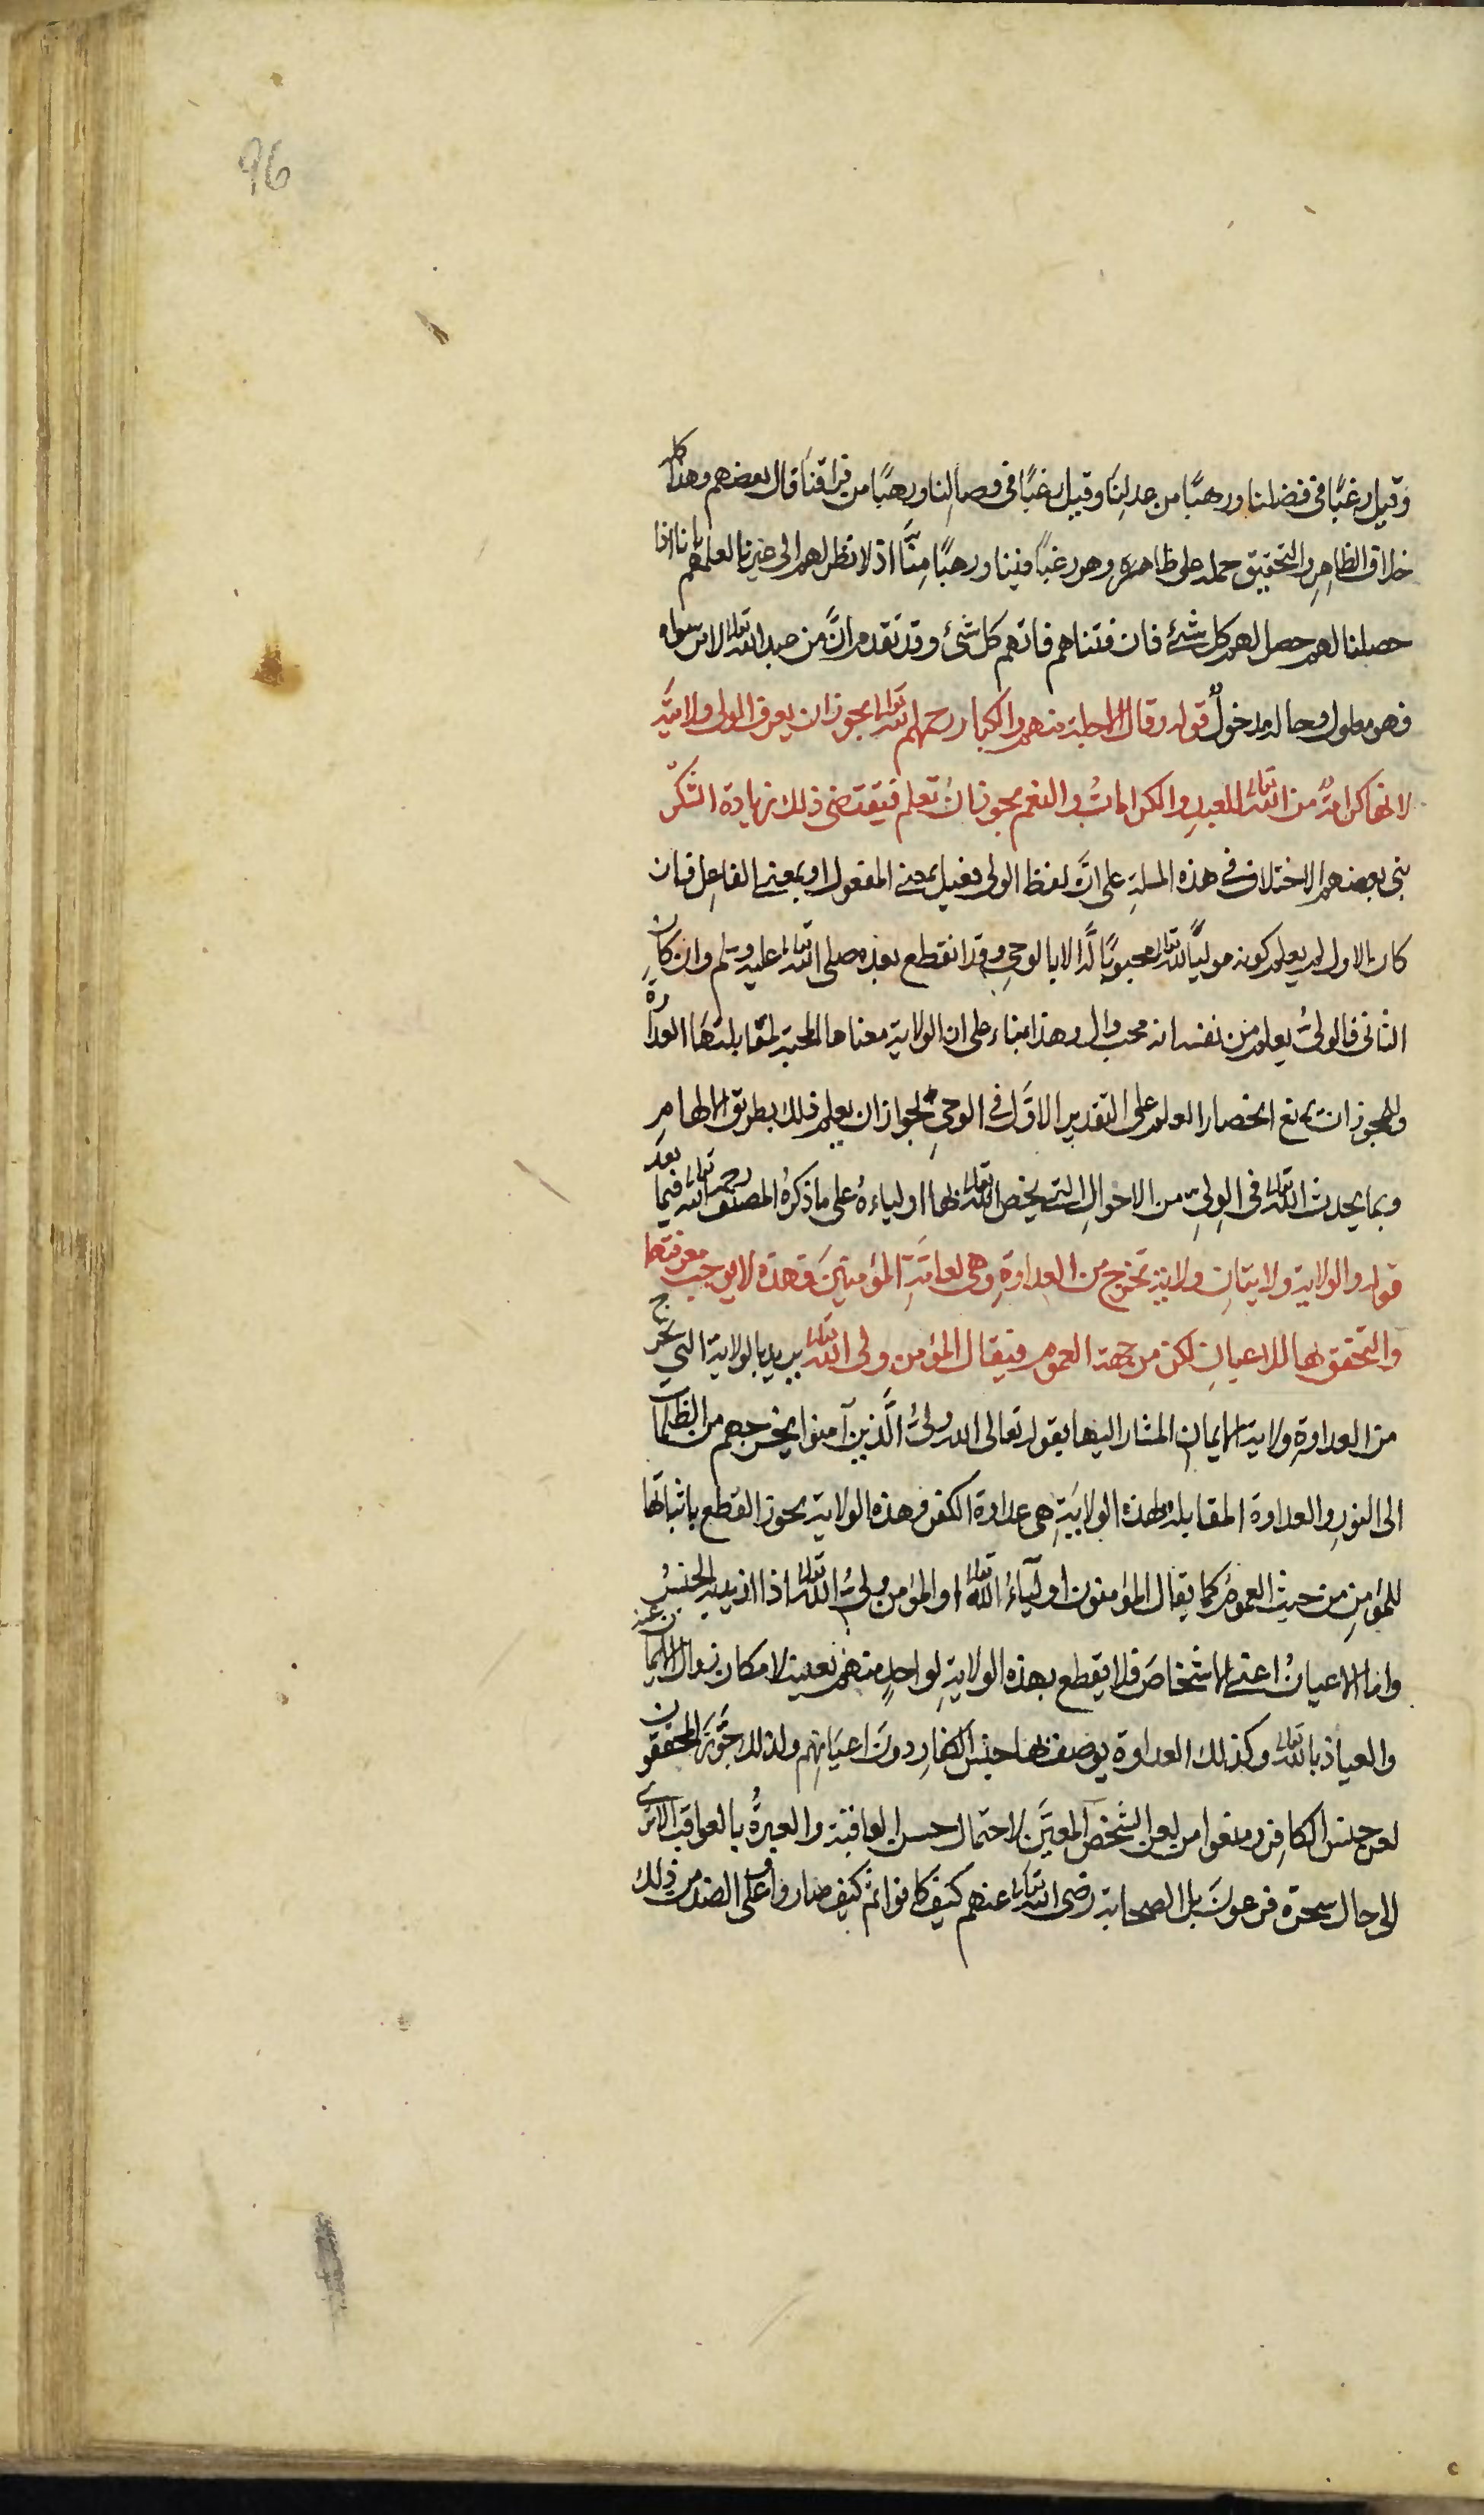 96
وقيل رغبًا في فضلنا ورهبًا من عدلنا وقيل رغبًا في وصالنا ورهبًا من فراقنا قال بعضهم وهذا كله
خلاف الظاهر والتحقيق حمله على ظاهره وهو رغبًا فينا ورهبًا منّا اذ لا نظر لهم الى غيرنا لعلمهم بانا اذا
حصلنا لهم حصل لهم كل شئ فان فتناهم فاتهم كل شئ وقد تقدم انّ من عبد الله تعالى لامر سواه
فهو معلول وحاله مدخولٌ قوله وقال الاجلة منهم والكبار رحمهم الله تعالى يجوز ان يعرف الولى ولايته
لانها كرامةٌ من الله تعالى للعبد والكرامات والنعم يجوز ان تعلم فيقتضى ذلك زيادة الشكر
بنى بعضهم الاختلاف في هذه المسلة على انّ لفظ الولى فعيل بمعنى المفعول او بمعنى الفاعل فان
كان الاول لم يعلم كونه موليًّا لله تعالى محبوبًا له الا بالوحي وقد انقطع بعده صلى الله تعالى عليه وسلم وان كان
الثانى فالولىُّ يعلم من نفسه انه محب وال وهذا بناء على ان الولاية معناها المحبة لمقابلتها العداوة
وللمجوز ان يمنع انحصار العلم على التقدير الاوّل في الوحي لجواز ان يعلم ذلك بطريق الالهام
وبما يحدث الله تعالى في الولي من الاحوال التي يخص الله تعالى بها اولياءه على ما ذكره المصنف رحمه الله تعالى فيما بعد
قوله والولاية ولايتان ولاية تخرج من العداوة وهي لعامّة المؤمنين فهذه لا يوجب معرفتها
والتحقق بها للاعيان لكن من جهة العموم فيقال المؤمن ولى الله تعالى يريد بالولاية التي تخرج
من العداوة ولاية الايمان المشار اليها بقوله تعالى الله ولىُّ الَّذين آمنوا يخرجهم من الظلمات
الى النور والعداوة المقابلة لهذه الولاية هي عداوة الكفر فهذه الولاية يجوز القطع باثباتها
للمؤمن من حيث العموم كما يقال المؤمنون اولياءُ الله تعالى او المؤمن ولىُّ الله تعالى اذا اريد به الجنس
واما الاعيانُ اعنى الاشخاصَ فلا يقطع بهذه الولاية لواحدٍ منهم بعينه لامكان زوال الايمان عنه
والعياذ بالله تعالى وكذلك العداوة يوصف بها جنس الكفار دون اعيانهم ولذلك جَوَّزَ المحققون
لعن جنس الكافر ومنعوا من لعن الشخص المعيَّن لاحتمال حسن العاقبة والعبرةُ بالعواقب الا ترى
الى حال سحرة فرعون بل الصحابة رضى الله تعالى عنهم كيف كانوا ثم كيف صاروا وعلى الضد من ذلك